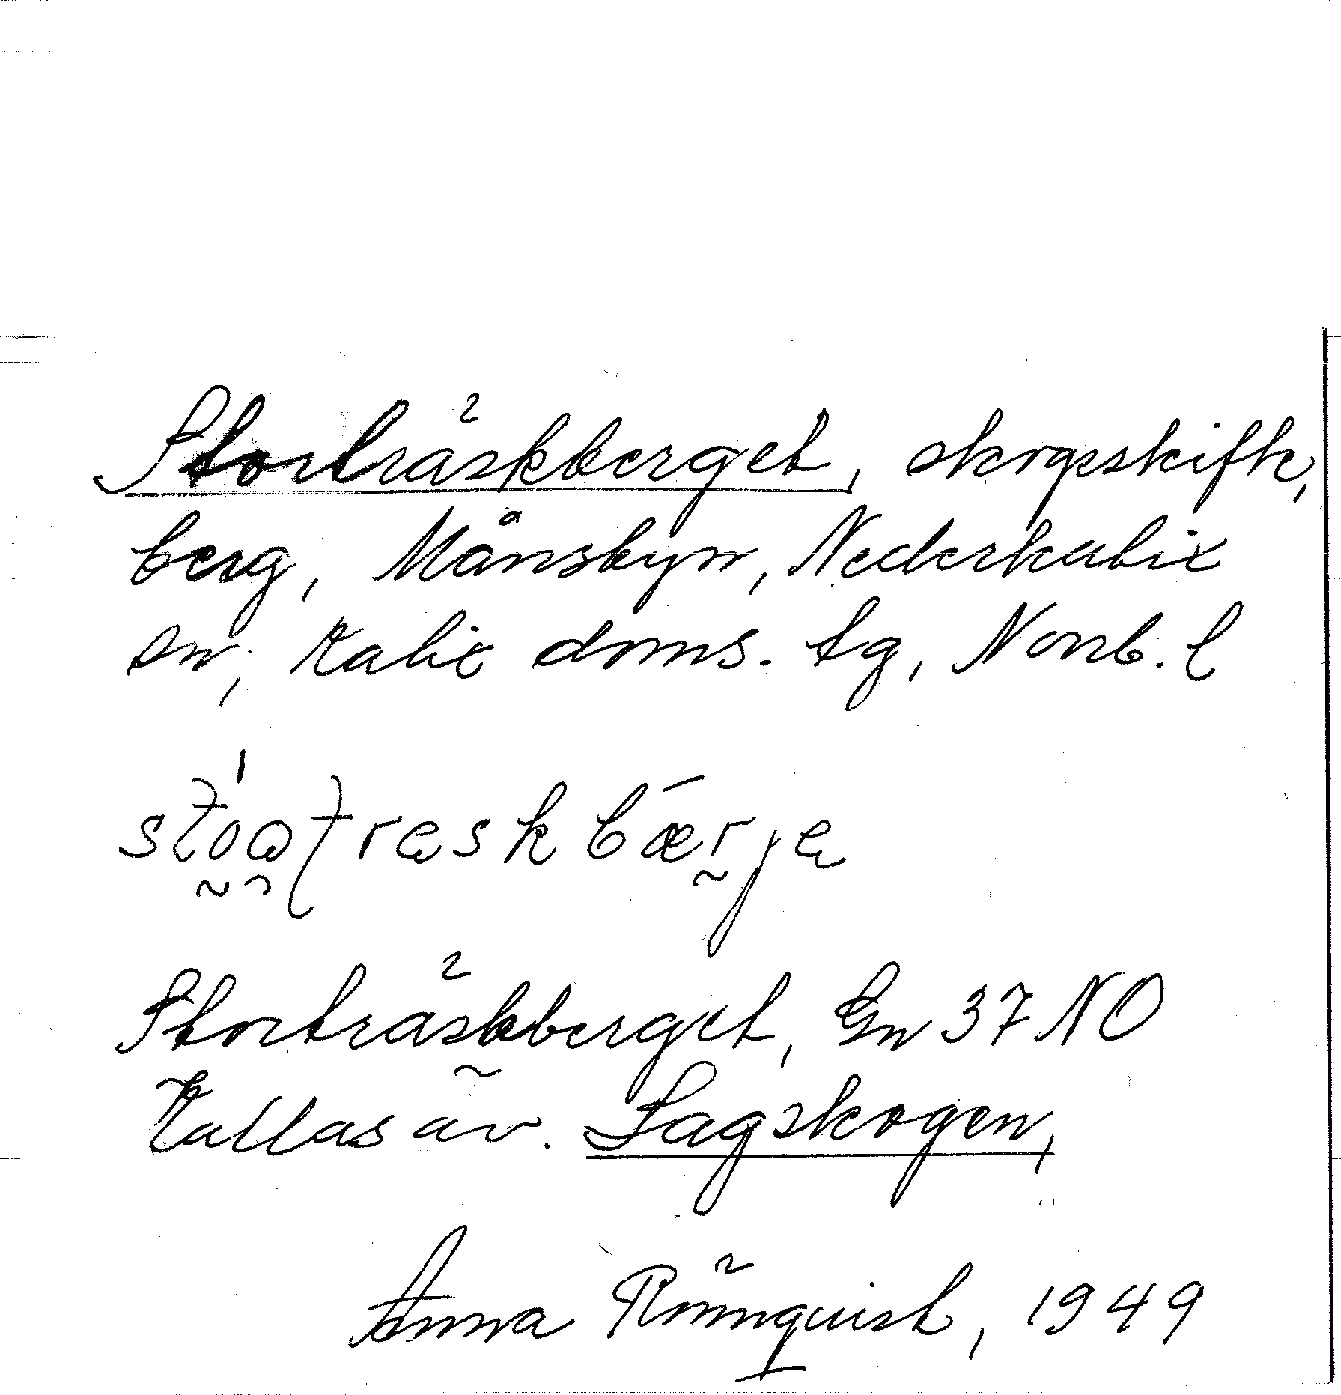 Storträskberget, skogsskifte,
berg, Månsbyn, Nederkalix
sn, Kalix doms. tg, Norrb. l
Storträskberget, Gn 37 NO
Kallas äv. Sagskogen,
Anna Rönnquist, 1949